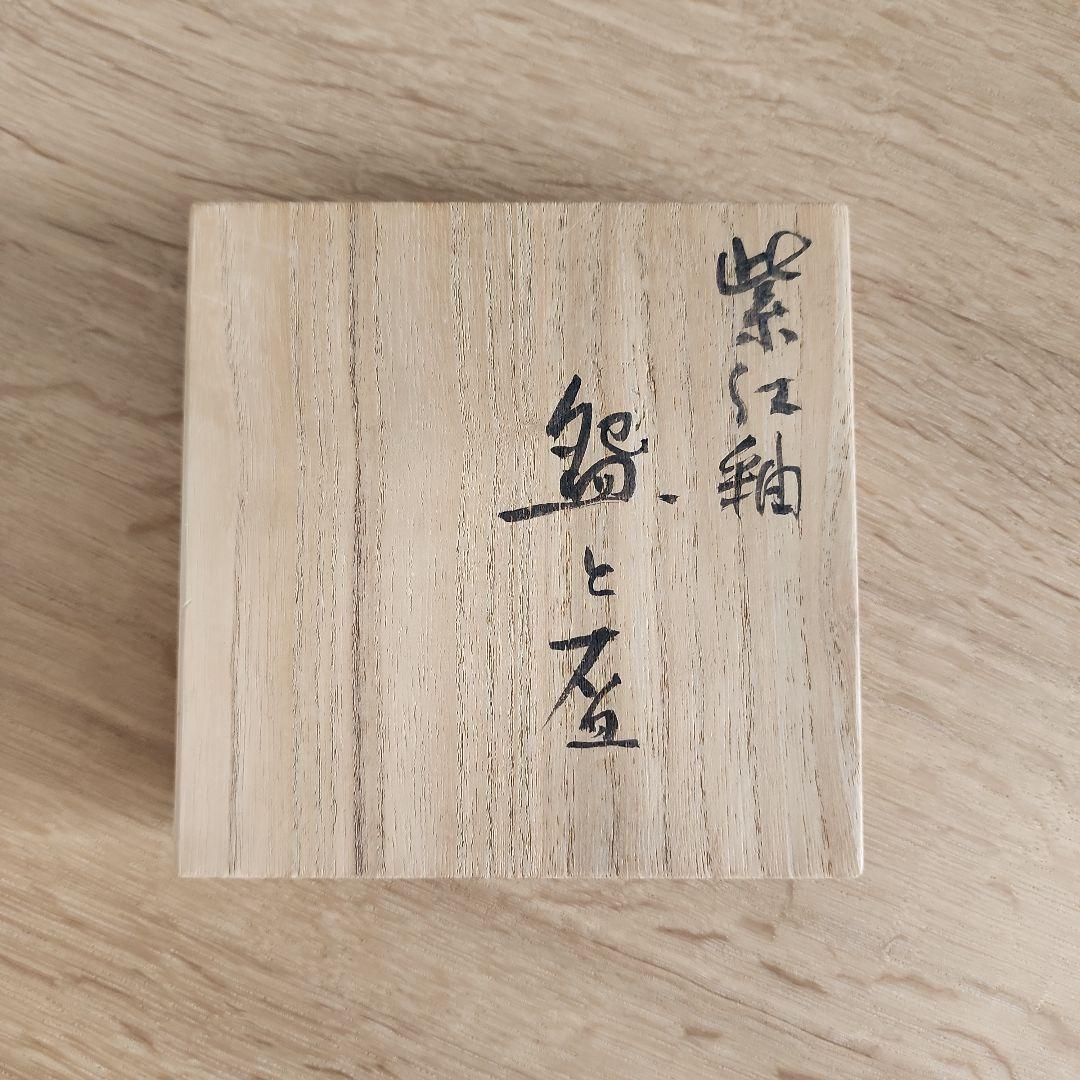 紫紅釉
盌と盃